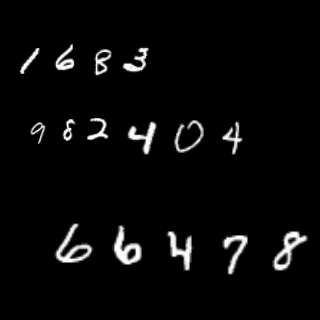 1683
982404
66478